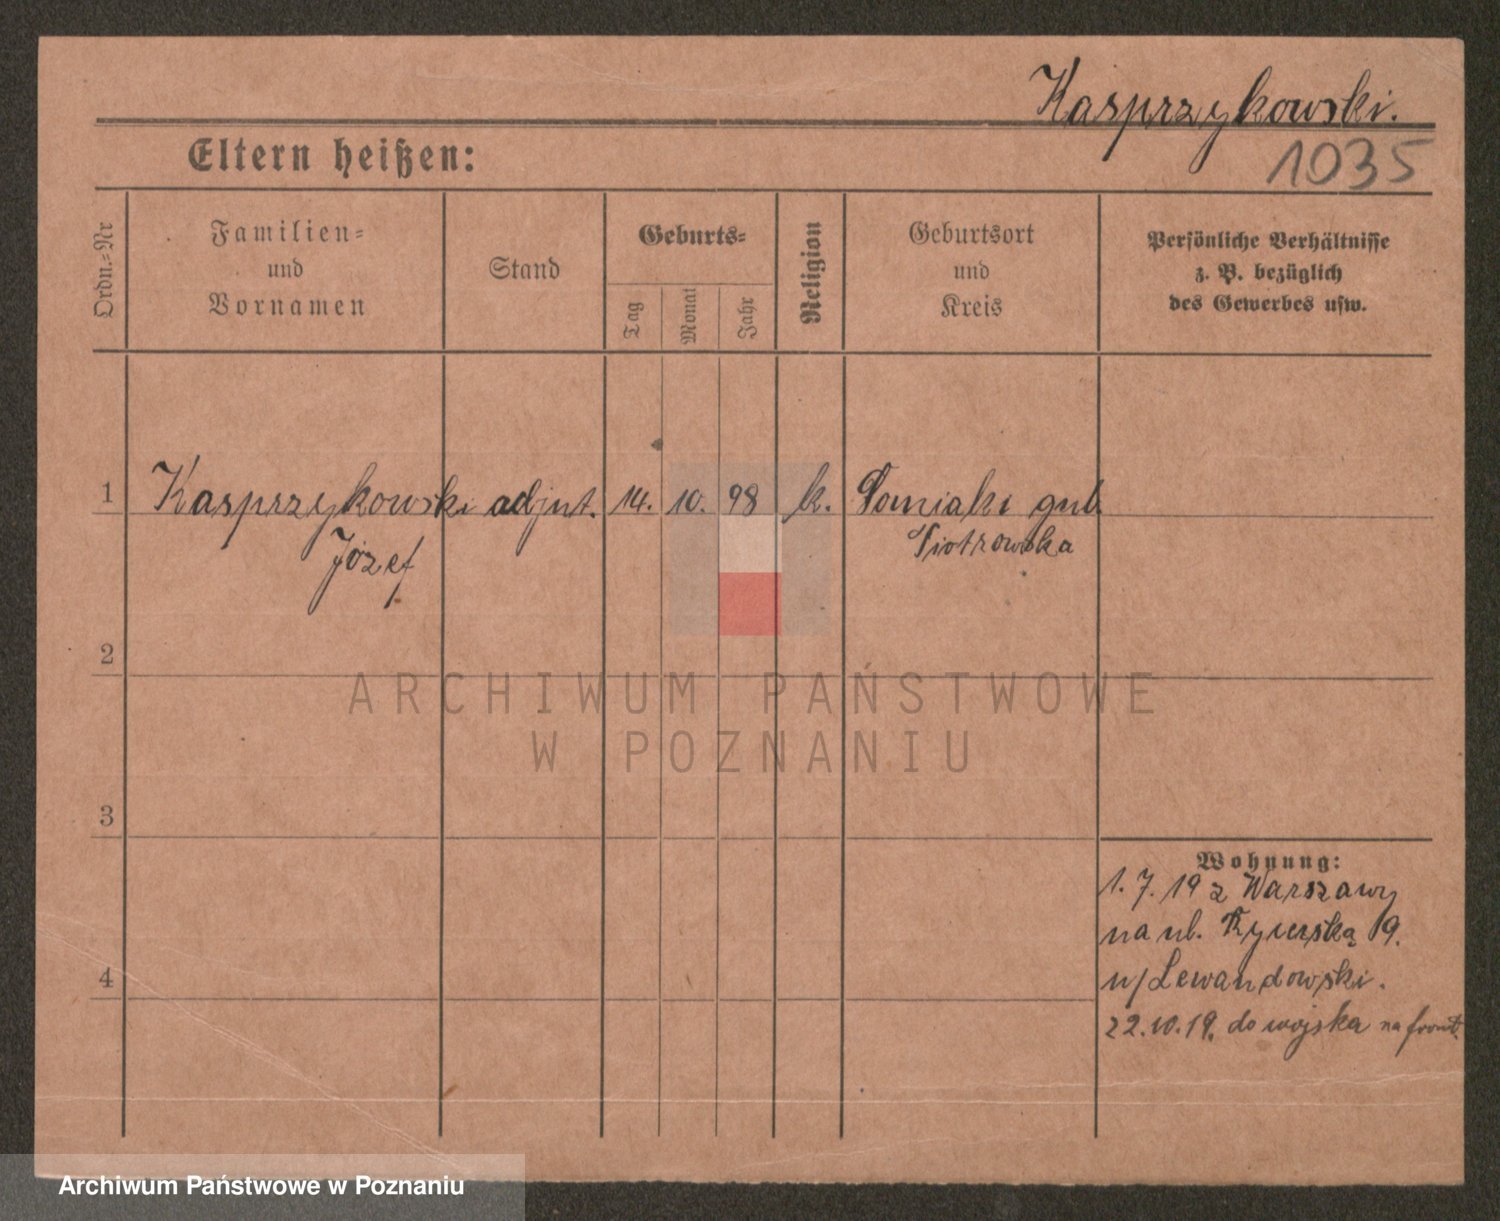 Kasprzykowski.
1035
Eltern heißen:
Ordn.-Nr
Familien-
und
Vornamen
Stand
Geburts-
Tag
Monat
Jahr
Religion
Geburtsort
und
Kreis
Persönliche Verhältnisse
z. B. bezüglich
des Gewerbes usw.
1 Kasprzykowski adjut. 14. 10. 98 k. gub
Józef Piotrowska
2
ARCHIWUM PAŃSTWOWE
W POZNANIU
3
Wohnung:
1. 7. 19 z Warszawy
na ul. 19.
Lewandowski.
4
22.10.19. do wojska na front.
Archiwum Państwowe w Poznaniu